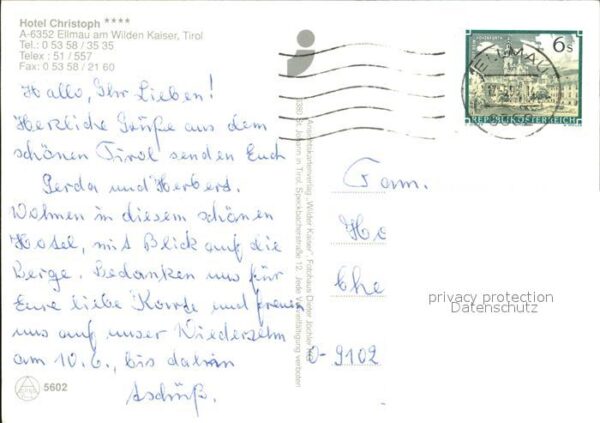 Hotel Christoph ****
A-6352 Ellmau am Wilden Kaiser, Tirol
Tel.: 0 53 58 / 35 35
Telex : 51 / 557
Fax: 0 53 58 / 21 60
Hallo, Ihr Lieben!
Herzliche Grüße aus dem
schönen Tirol senden Euch
Gerda und Herbert.
Wohnen in diesem schönen
Hotel, mit Blick auf die
Berge. Bedanken uns für
Eure liebe Karte und freuen
uns auf unser Wiedersehn
am 10.6., bis dahin
tschüß.
5602
Ansichtskartenverlag "Wilder Kaiser" Fotohaus Dieter Jöchler
6380 St. Johann in Tirol, Speckbacherstraße 12. Jede Vervielfältigung verboten
6 S
REPUBLIK ÖSTERREICH
ELLMAU
Fam.
Ho
Che
O-9102
privacy protection
Datenschutz